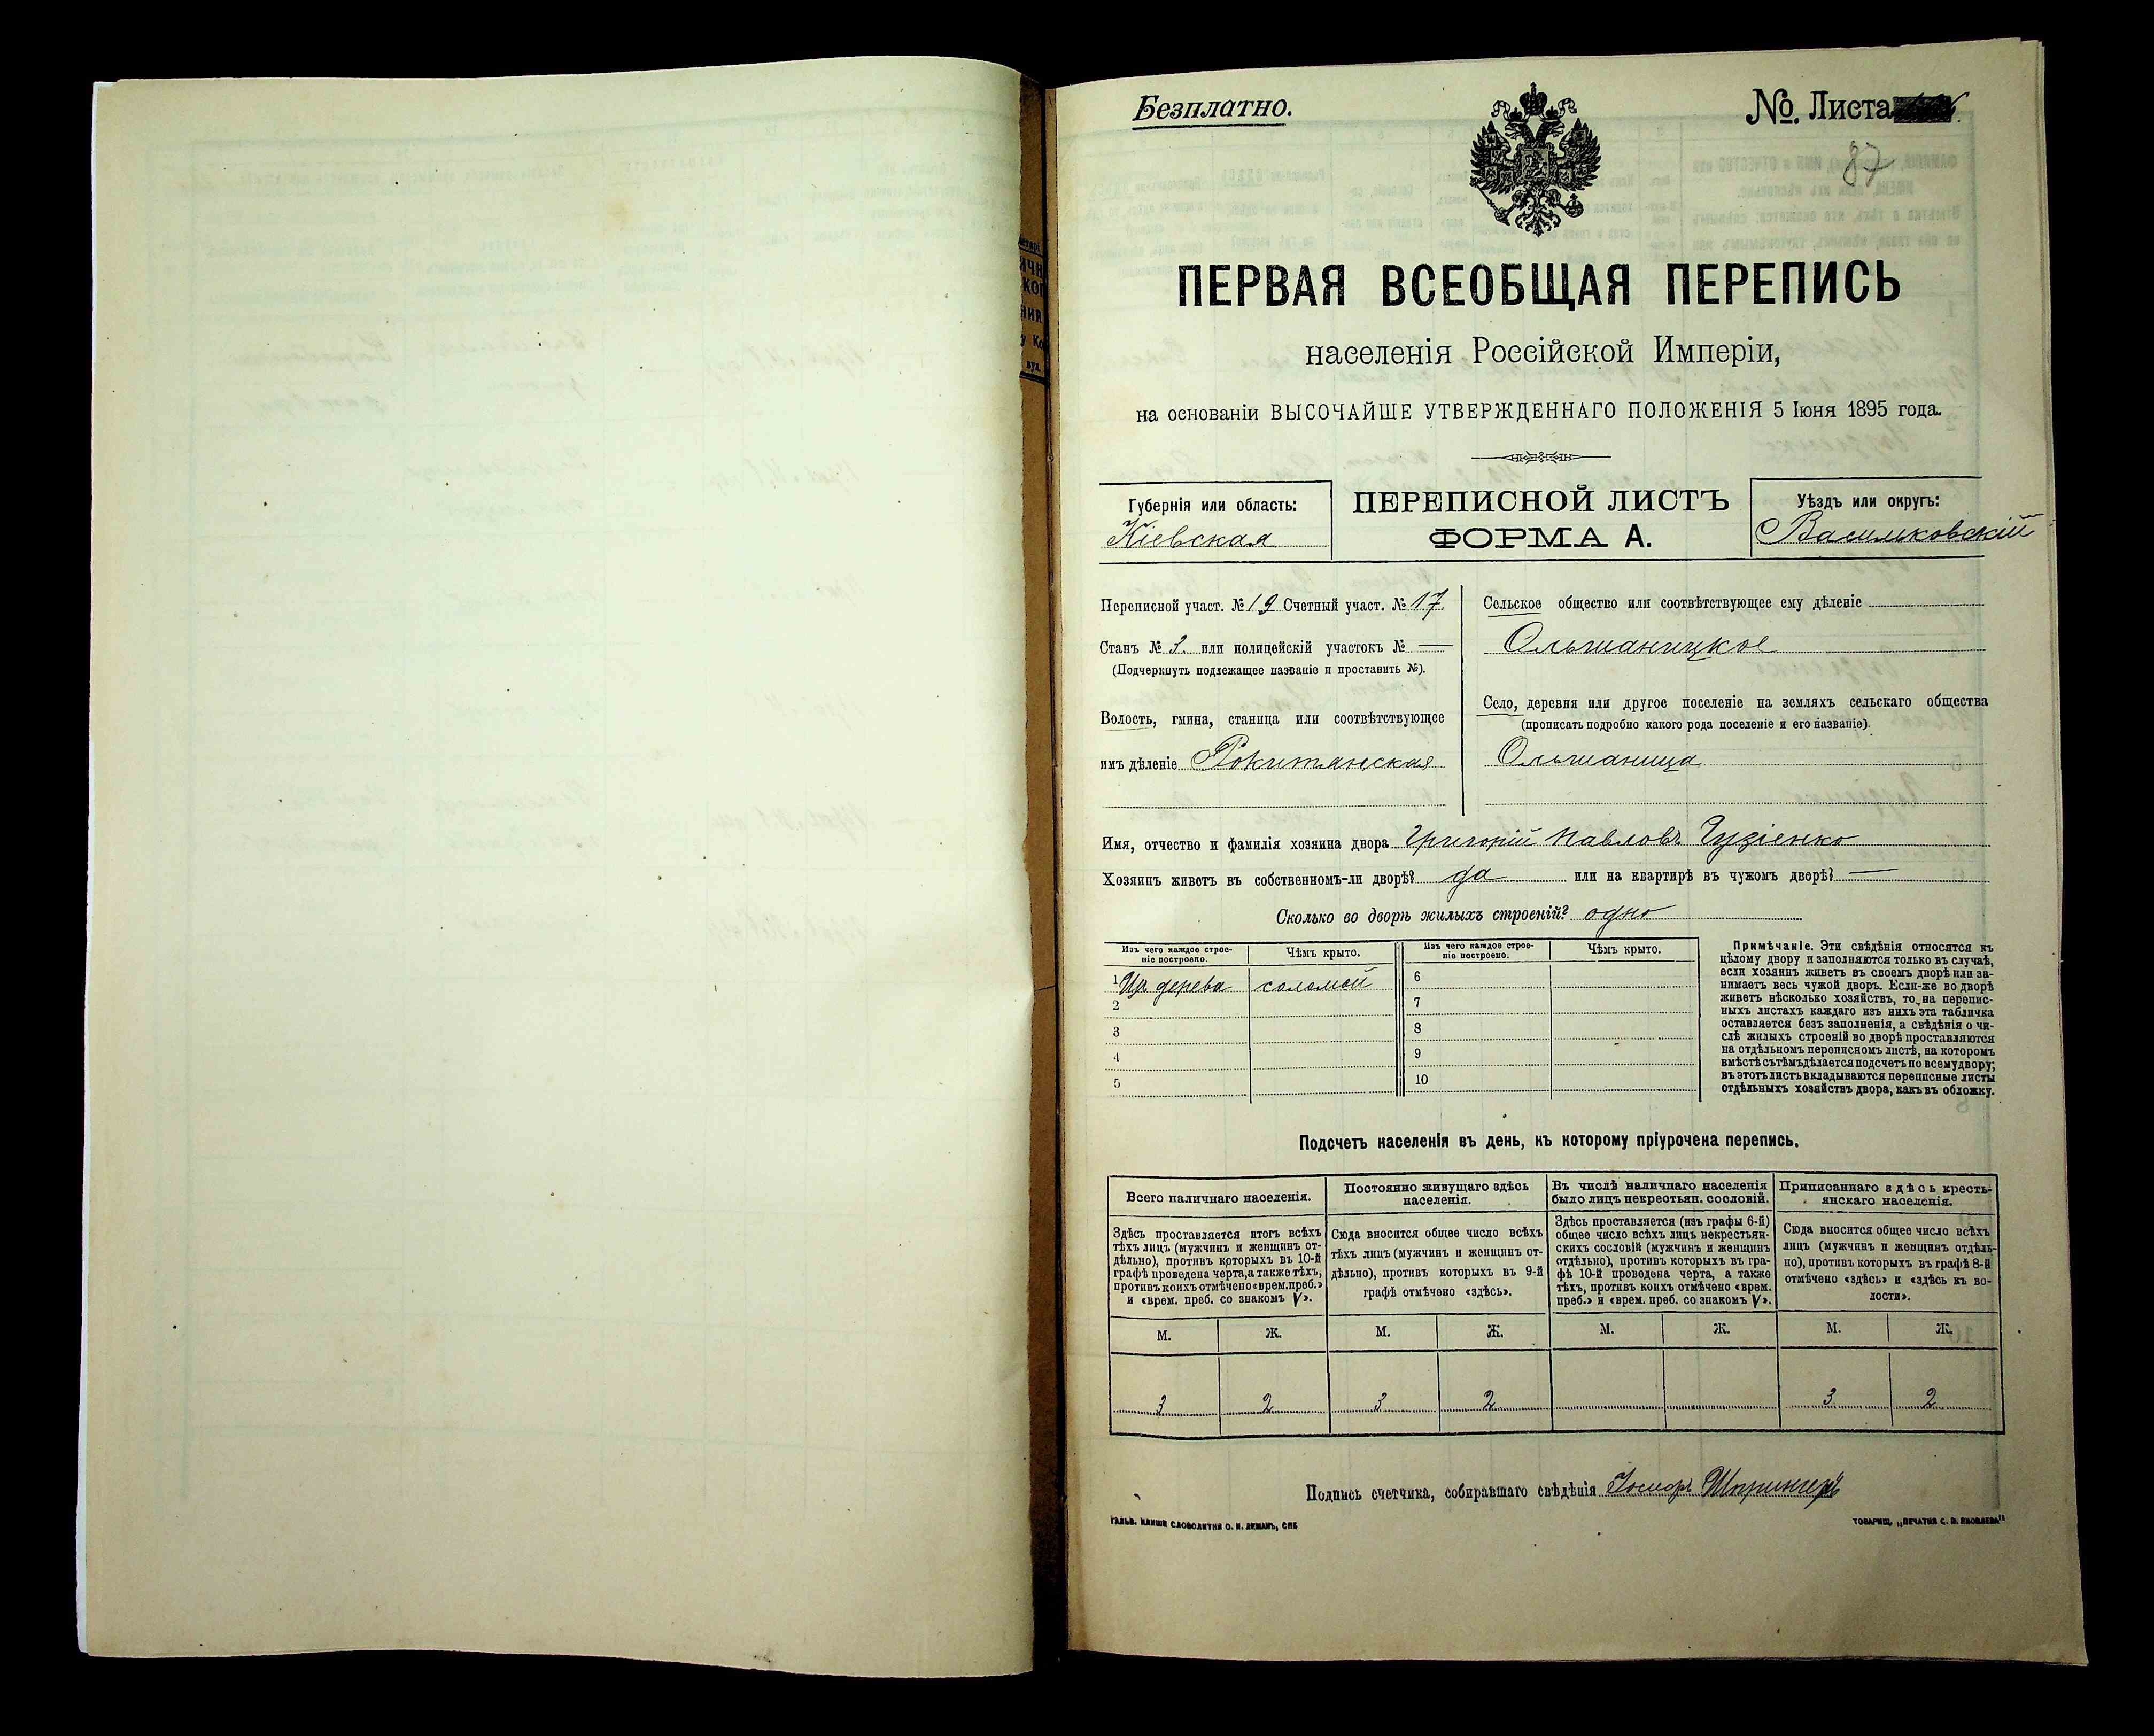 Безплатно.
№. Листа
87
ПЕРВАЯ ВСЕОБЩАЯ ПЕРЕПИСЬ
населенія Россійской Имперіи,
на основаніи ВЫСОЧАЙШЕ УТВЕРЖДЕННАГО ПОЛОЖЕНІЯ 5 Іюня 1895 года.
Губернія или область:
Кіевская
ПЕРЕПИСНОЙ ЛИСТЪ
ФОРМА А.
Уѣздъ или округъ:
Васильковскій
Переписной участ. № 19 Счетный участ. № 17.
Станъ № 3. или полицейскій участокъ № —
(Подчеркнуть подлежащее названіе и проставить №).
Волость, гмина, станица или соотвѣтствующее
имъ дѣленіе Рокитянская
Сельское общество или соотвѣтствующее ему дѣленіе
Ольшаницкое
Село, деревня или другое поселеніе на земляхъ сельскаго общества
(прописать подробно какого рода поселеніе и его названіе).
Ольшаница
Имя, отчество и фамилія хозяина двора Григорій Павловъ Гузіенко
Хозяинъ живетъ въ собственномъ-ли дворѣ? да или на квартирѣ въ чужомъ дворѣ? —
Сколько во дворѣ жилыхъ строеній? одно
Изъ чего каждое строе-
ніе построено.
Чѣмъ крыто.
1 Изъ дерева соломой
2
3
4
5
Изъ чего каждое строе-
ніе построено.
Чѣмъ крыто.
6
7
8
9
10
Примѣчаніе. Эти свѣдѣнія относятся къ
цѣлому двору и заполняются только въ случаѣ,
если хозяинъ живетъ въ своемъ дворѣ или за-
нимаетъ весь чужой дворъ. Если-же во дворѣ
живетъ нѣсколько хозяйствъ, то на перепис-
ныхъ листахъ каждаго изъ нихъ эта табличка
оставляется безъ заполненія, а свѣдѣнія о чи-
слѣ жилыхъ строеній во дворѣ проставляются
на отдѣльномъ переписномъ листѣ, на которомъ
вмѣстѣ съ тѣмъ дѣлается подсчетъ по всему двору;
въ этотъ листъ вкладываются переписные листы
отдѣльныхъ хозяйствъ двора, какъ въ обложку.
Подсчетъ населенія въ день, къ которому пріурочена перепись.
Всего наличнаго населенія.
Здѣсь проставляется итогъ всѣхъ
тѣхъ лицъ (мужчинъ и женщинъ от-
дѣльно), противъ которыхъ въ 10-й
графѣ проведена черта, а также тѣхъ,
противъ коихъ отмѣчено «врем. преб.»
и «врем. преб. со знакомъ V».
М. Ж.
3 2
Постоянно живущаго здѣсь
населенія.
Сюда вносится общее число всѣхъ
тѣхъ лицъ (мужчинъ и женщинъ от-
дѣльно), противъ которыхъ въ 9-й
графѣ отмѣчено «здѣсь».
М. Ж.
3 2
Въ числѣ наличнаго населенія
было лицъ некрестьян. сословій.
Здѣсь проставляется (изъ графы 6-й)
общее число всѣхъ лицъ некрестьян-
скихъ сословій (мужчинъ и женщинъ
отдѣльно), противъ которыхъ въ гра-
фѣ 10-й проведена черта, а также
тѣхъ, противъ коихъ отмѣчено «врем.
преб.» и «врем. преб. со знакомъ V».
М. Ж.
Приписаннаго здѣсь кресть-
янскаго населенія.
Сюда вносится общее число всѣхъ
лицъ (мужчинъ и женщинъ отдѣль-
но), противъ которыхъ въ графѣ 8-й
отмѣчено «здѣсь» и «здѣсь къ во-
лости».
М. Ж.
3 2
Подпись счетчика, собиравшаго свѣдѣнія Іосифъ Шпрингеръ
ГАЛЬВ. КЛИШЕ СЛОВОЛИТНИ О. И. ЛЕМАНЪ, СПБ
ТОВАРИЩ. „ПЕЧАТНЯ С. П. ЯКОВЛЕВА"